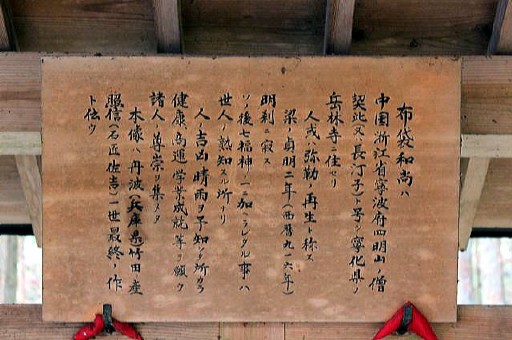 布袋和尚ハ
中国浙江省寧波府四明山ノ僧
契此又ハ長汀子ト号シ寧化県ノ
岳林寺ニ住セリ
人或ハ弥勒ノ再生ト称ス
梁ノ貞明二年(西暦九一六年)
明利ニ寂ス
ソノ後七福神ノ一ニ加ヘラレタル事ハ
世人ノ熟知スル所ナリ
人ノ吉凶晴雨ヲ予知スル所カラ
健康、高運学業成就等ヲ願ウ
諸人ノ尊崇ヲ集メタ
本像ハ丹波(兵庫県)竹田産
照信(右近佐吉)一世最終ノ作
ト伝ウ